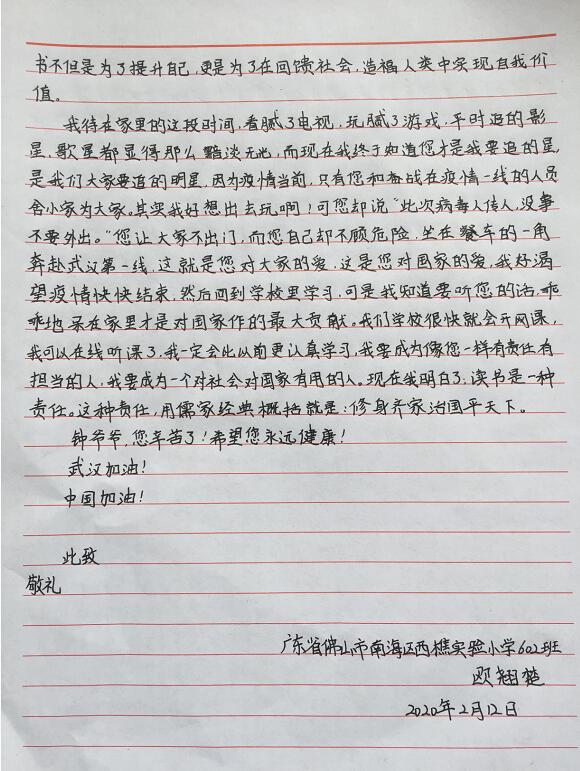 书不但是为了提升自己,更是为了在回馈社会,造福人类中实现自我价
值。
我待在家里的这段时间,看腻了电视,玩腻了游戏,平时追的影
星,歌星都显得那么黯淡无光,而现在我终于知道您才是我要追的星,
是我们大家要追的明星,因为疫情当前,只有您和奋战在疫情一线的人员
舍小家为大家。其实我好想出去玩啊!可您却说“此次病毒人传人,没事
不要外出。”您让大家不出门,而您自己却不顾危险,坐在餐车的一角
奔赴武汉第一线,这就是您对大家的爱,这是您对国家的爱,我好渴
望疫情快快结束,然后回到学校里学习,可是我知道要听您的话,乖
乖地呆在家里才是对国家作的最大贡献。我们学校很快就会开网课,
我可以在线听课了,我一定会比以前更认真学习,我要成为像您一样有责任有
担当的人,我要成为一个对社会对国家有用的人。现在我明白了:读书是一种
责任。这种责任,用儒家经典概括就是:修身齐家治国平天下。
钟爷爷,您辛苦了!希望您永远健康!
武汉加油!
中国加油!
此致
敬礼
广东省佛山市南海区西樵实验小学602班
欧翊楚
2020年2月12日